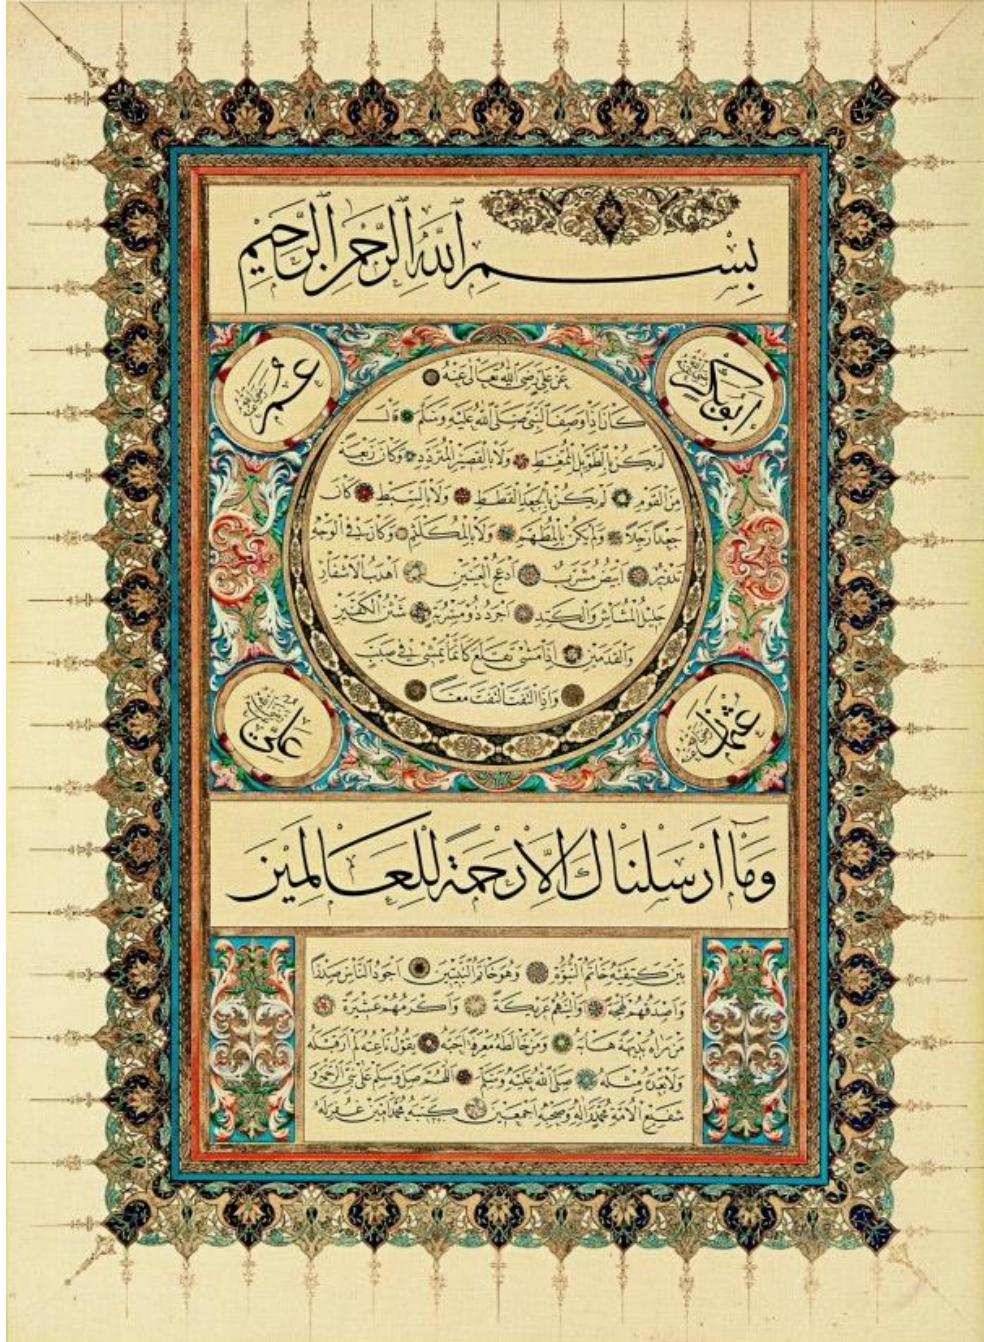 بِسْمِ اللَّهِ الرَّحْمَنِ الرَّحِيمِ
ابوبكر رضي الله عنه
عمر رضي الله عنه
عن علي رضي الله تعالى عنه
كان اذا وصف النبي صلى الله عليه وسلم قال
لم يكن بالطويل الممغط ولا بالقصير المتردد وكان ربعة
من القوم لم يكن بالجعد القطط ولا بالسبط كان
جعدا رجلا ولم يكن بالمطهم ولا بالمكلثم وكان في الوجه
تدوير ابيض مشرب ادعج العينين اهدب الاشفار
جليل المشاش والكتد اجرد ذو مسربة شثن الكفين
والقدمين اذا مشى تقلع كانما يمشي في صبب
واذا التفت التفت معا
عثمان رضي الله عنه
علي رضي الله عنه
وما ارسلناك الا رحمة للعالمين
بين كتفيه خاتم النبوة وهو خاتم النبيين اجود الناس صدرا
واصدقهم لهجة والينهم عريكة واكرمهم عشيرة
من راه بديهة هابه ومن خالطه معرفة احبه يقول ناعته لم ار قبله
ولا بعده مثله صلى الله عليه وسلم اللهم صل وسلم على نبي الرحمة و
شفيع الامة محمد واله وصحبه اجمعين كتبه محمد امين غفر له